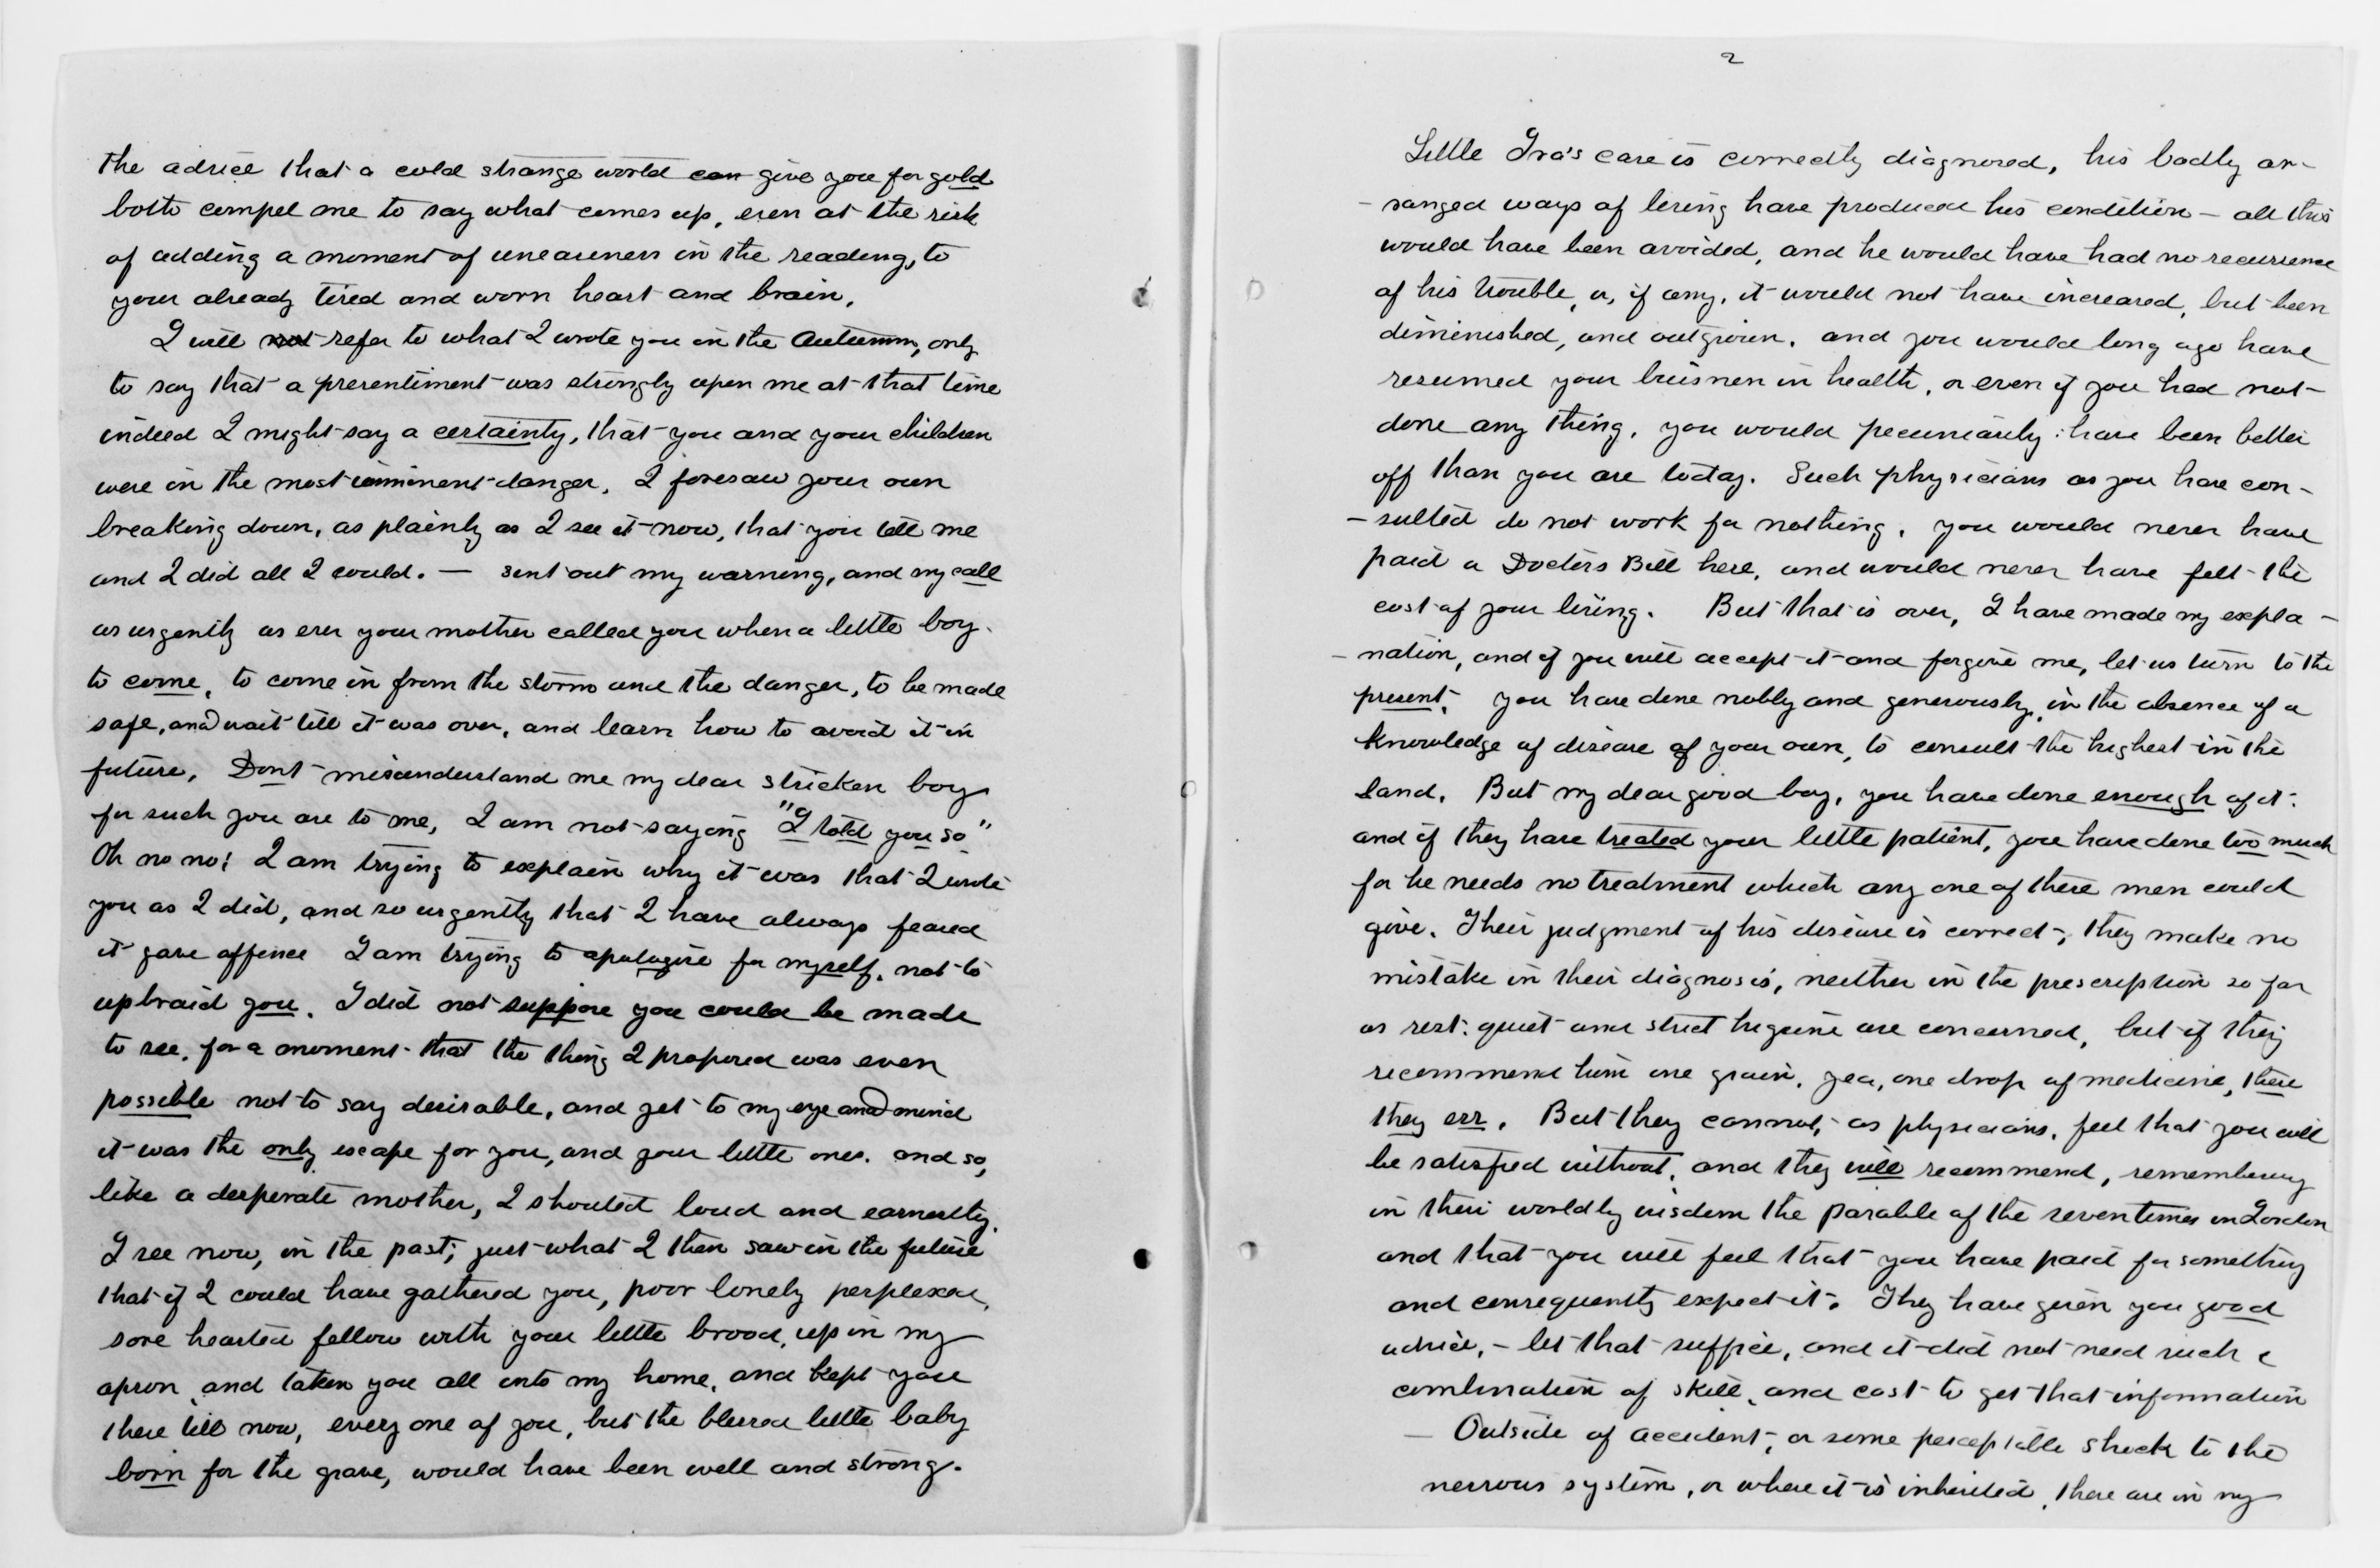 the advice that a cold strange world can give you for gold
both compel me to say what comes up, even at the risk
of adding a moment of uneasiness in the reading, to
your already tired and worn heart and brain.
I will not refer to what I wrote you in the Autumn, only
to say that a presentiment was strongly upon me at that time
indeed I might say a certainty, that you and your children
were in the most imminent danger. I foresaw your own
breaking down, as plainly as I see it now, that you tell me
and I did all I could. — sent out my warning, and my call
as urgently as ever your mother called you when a little boy
to come, to come in from the storm and the danger, to be made
safe, and wait till it was over, and learn how to avoid it in
future, Dont misunderstand me my dear stricken boy
for such you are to me, I am not saying "I told you so"
Oh no no! I am trying to explain why it was that I wrote
you as I did, and so urgently that I have always feared
it gave offence I am trying to apologise for myself, not to
upbraid you. I did not suppose you could be made
to see, for a moment that the thing I proposed was even
possible not to say desirable, and yet to my eye and mind
it was the only escape for you, and your little ones. and so,
like a desperate mother, I shouted loud and earnestly.
I see now, in the past, just what I then saw in the future
that if I could have gathered you, poor lonely perplexed,
sore hearted fellow with your little brood, up in my
apron and taken you all into my home, and kept you
there till now, every one of you, but the blessed little baby
born for the grave, would have been well and strong.
2
Little Ira's case is correctly diagnosed, his badly ar-
-ranged ways of living have produced his condition - all this
would have been avoided, and he would have had no recurrence
of his trouble, or, if any, it would not have increased, but been
diminished, and outgrown. and you would long ago have
resumed your buisness in health, or even if you had not
done any thing, you would pecuniarily have been better
off than you are today. Such physicians as you have con-
-sulted do not work for nothing. you would never have
paid a Doctors Bill here, and would never have felt the
cost of your living. But that is over, I have made my expla-
-nation, and if you will accept it and forgive me, let us turn to the
present. you have done nobly and generously, in the absence of a
knowledge of disease of your own, to consult the highest in the
land. But my dear good boy, you have done enough of it.
and if they have treated your little patient, you have done too much
for he needs no treatment which any one of these men could
give. Their judgment of his disease is correct, they make no
mistake in their diagnosis, neither in the prescription so far
as rest, quiet and strict higeine are concerned, but if they
recommend him one grain, yea, one drop of medicine, there
they err. But they cannot, as physicians, feel that you will
be satisfied without, and they will recommend, remembering
in their worldly wisdom the parable of the seven times in
and that you will feel that you have paid for something
and consequently expect it. They have given you good
advice, - let that suffice, and it did not need such a
combination of skill, and cost to get that information
— Outside of accident, or some perceptible shock to the
nervous system, or where it is inherited, there are in my